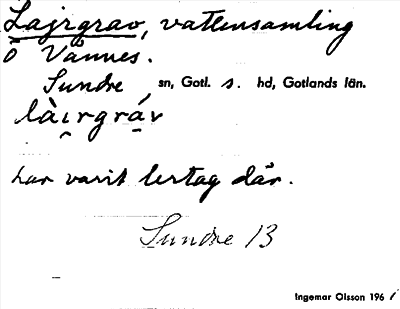 Lajrgrav, vattensamling
ö Vännes.
Sundre sn, Gotl. s. hd, Gotlands län.
làirgráv
har varit lertag där.
Sundre 13
Ingemar Olsson 1961